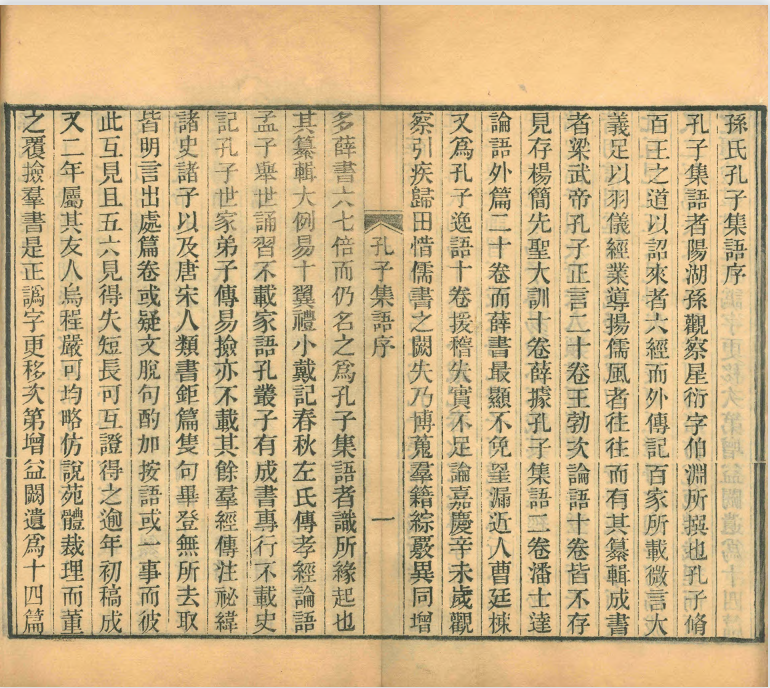 孫氏孔子集語序
孔子集語者陽湖孫觀察星衍字伯淵所撰也孔子脩
百王之道以詔來者六經而外傳記百家所載微言大
義足以羽儀經業導揚儒風者往往而有其纂輯成書
者梁武帝孔子正言二十卷王勃次論語十卷皆不存
見存楊簡先聖大訓十卷薛據孔子集語二卷潘士達
論語外篇二十卷而薛書最顯不免罣漏近人曹廷棟
又爲孔子逸語十卷援稽失實不足論嘉慶辛未歲觀
察引疾歸田惜儒書之闕失乃博蒐羣籍綜覈異同增
孔子集語序
一
多薛書六七倍而仍名之爲孔子集語者識所緣起也
其纂輯大例易十翼禮小戴記春秋左氏傳孝經論語
孟子舉世誦習不載家語孔叢子有成書專行不載史
記孔子世家弟子傳易撿亦不載其餘羣經傳注祕緯
諸史諸子以及唐宋人類書鉅篇隻句畢登無所去取
皆明言出處篇卷或疑文脫句酌加按語或一事而彼
此互見且五六見得失短長可互證得之逾年初稿成
又二年屬其友人烏程嚴可均略仿說苑體裁理而董
之覆撿羣書是正譌字更移次第增益闕遺爲十四篇